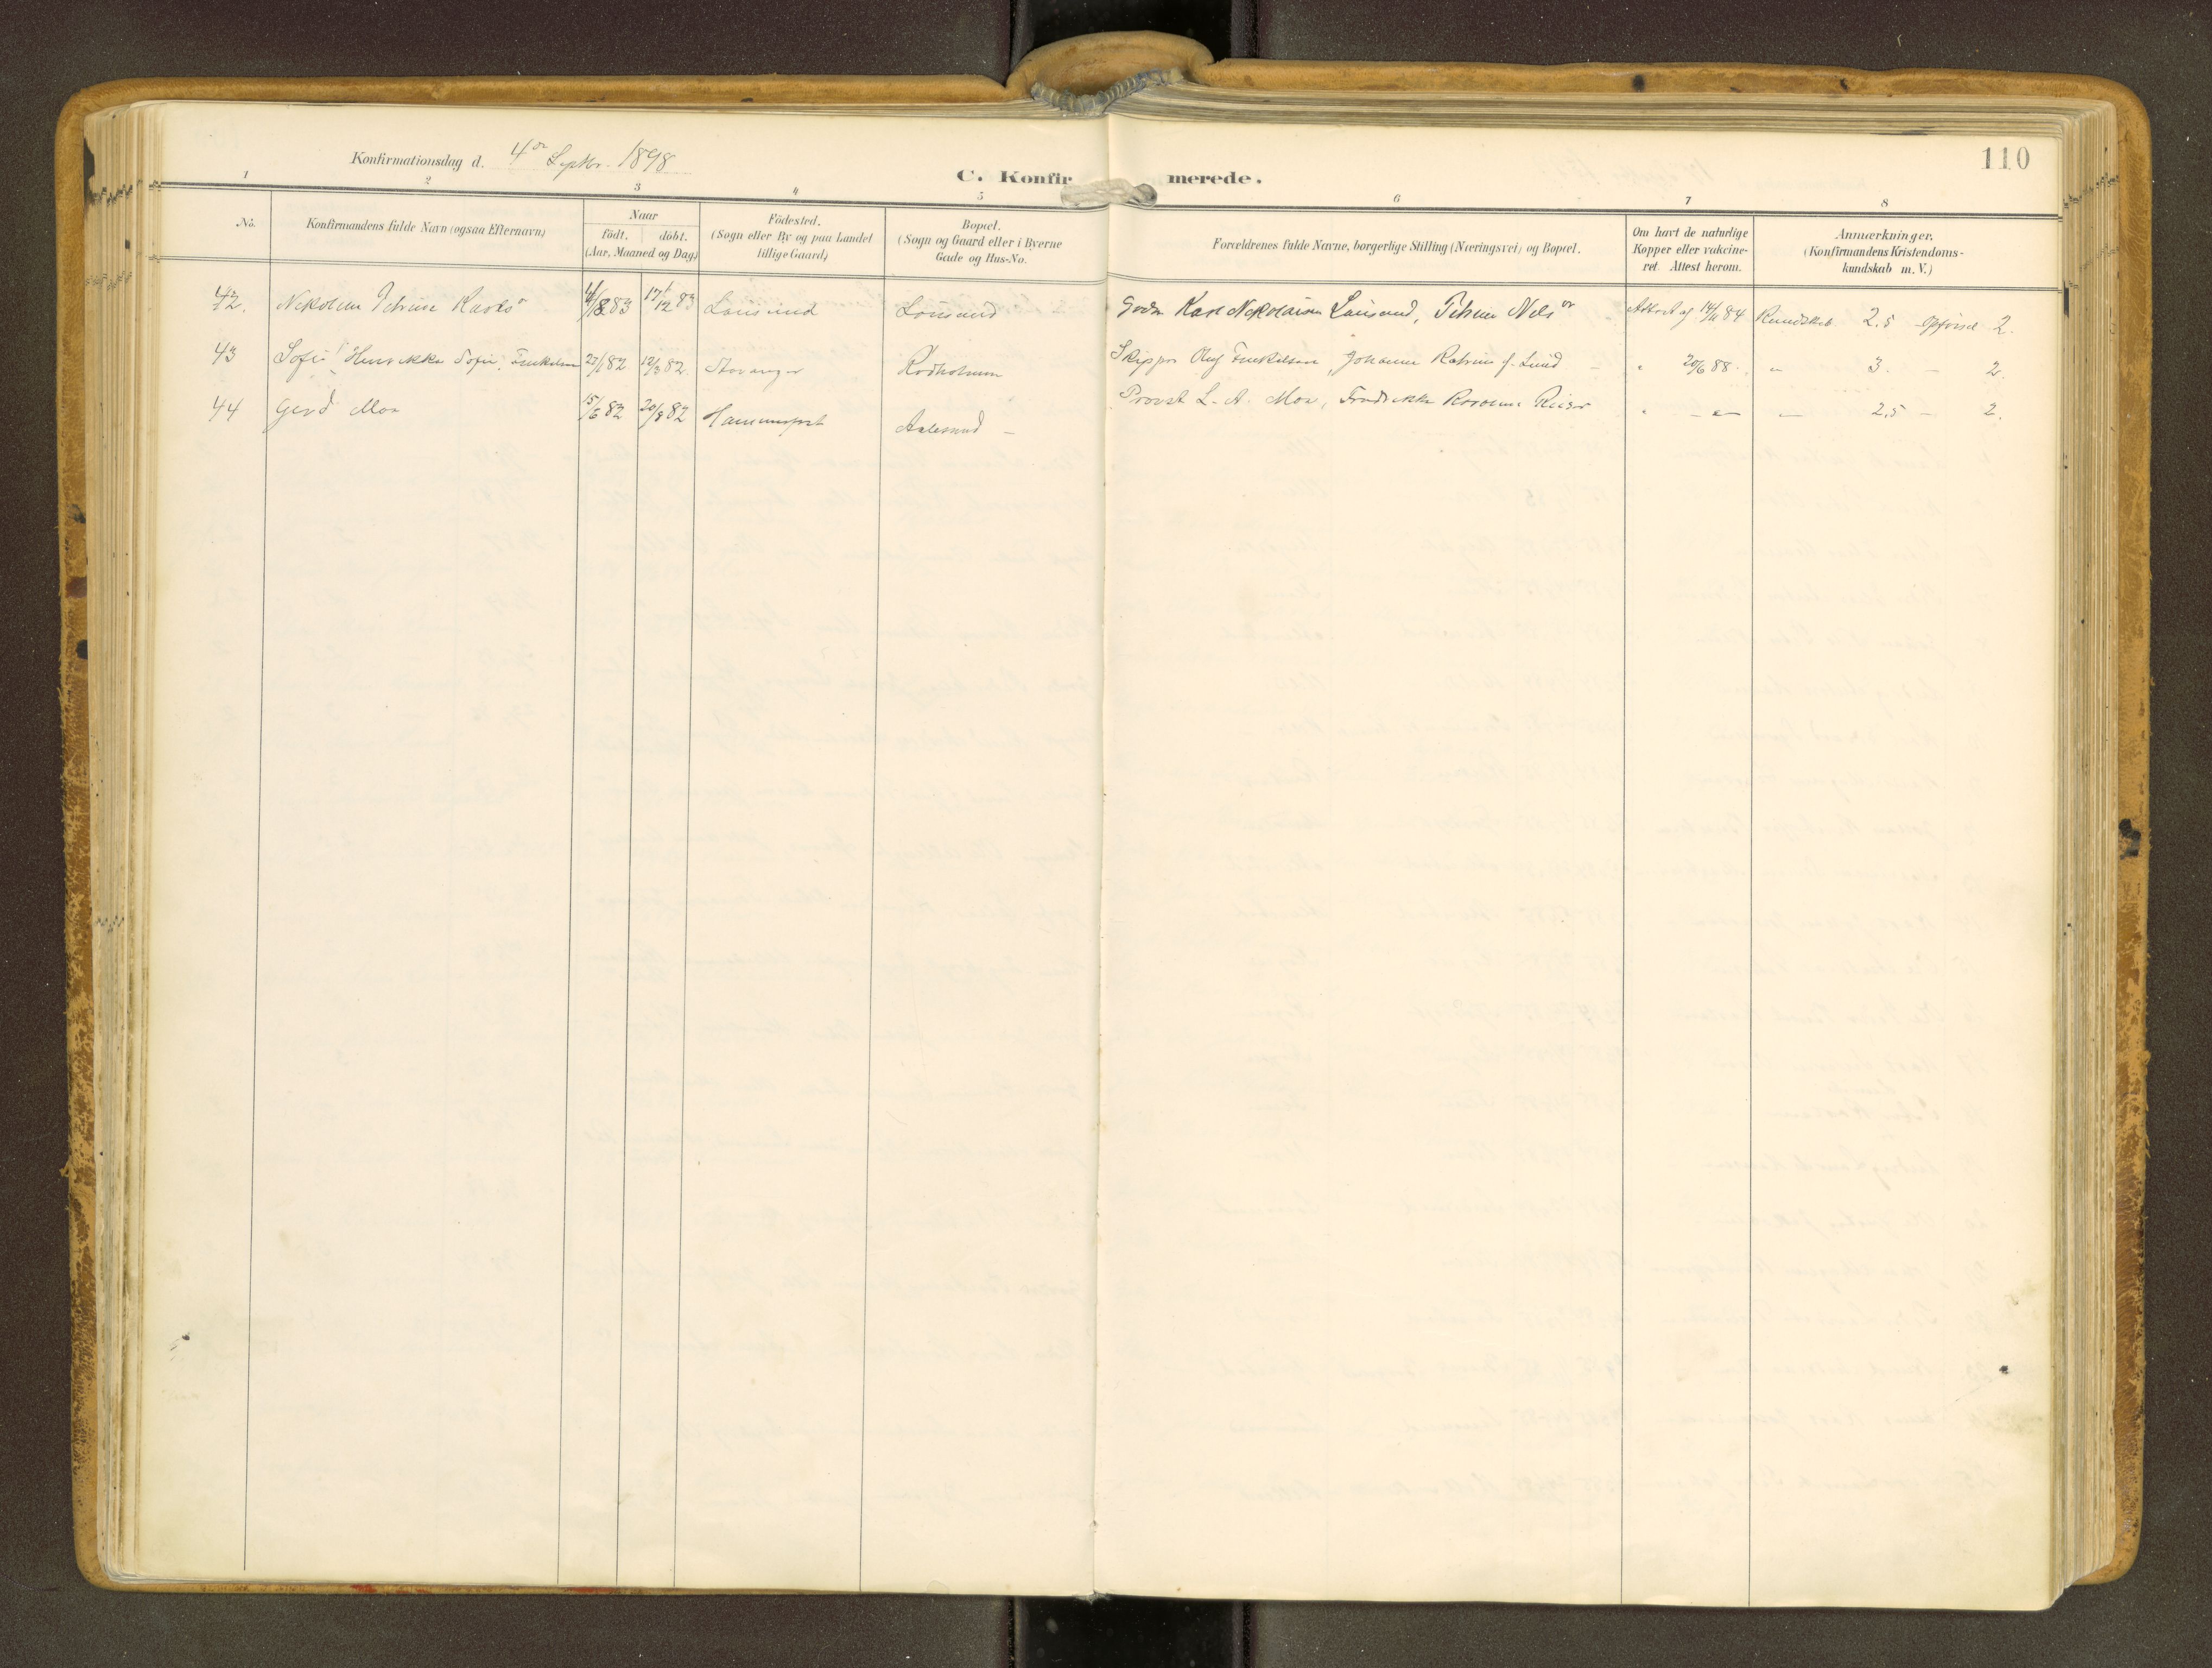 110
Konfirmationsdag d. 4de Septbr. 1898
C. Konfirmerede.
1 2 3 4 5 6 7 8
No. Konfirmandens fulde Navn (ogsaa Efternavn) Naar født. døbt. (Aar, Maaned og Dag) Fødested. (Sogn eller By og paa Landet tillige Gaard) Bopæl. (Sogn og Gaard eller i Byerne Gade og Hus-No. Forældrenes fulde Navne, borgerlige Stilling (Næringsvei) og Bopæl. Om havt de naturlige Kopper eller vakcineret. Attest herom. Anmærkninger. (Konfirmandens Kristendomskundskab m. V.)
42. Nikoline Petrine Karlsdr 83 83 Karl Nikolaisen Petrine Nilsdr Attest af 84 Kundskab 2.5 Opførsel 2.
43 Sofie Henrikke Sofie 27/1 82 12/3 82 Stavanger Rødholmen Skipper Oluf Johanne Katrine f. Lund " 20/6 88 " 3. - 2.
44 Gerd Moe 15/6 82 20/8 82 Hammerfest Aalesund - Provst L. A. Moe, Fredrikke " - " - " 2,5 - 2.